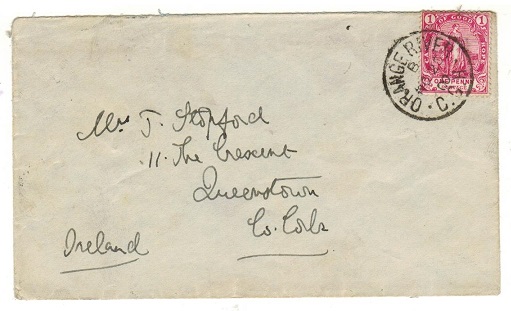 1 OF GOOD HOPE 1
ONE PENNY
ORANGE RIVER
C.
Mrs J. Stopford
11. The Crescent
Queenstown
Co. Cork
Ireland